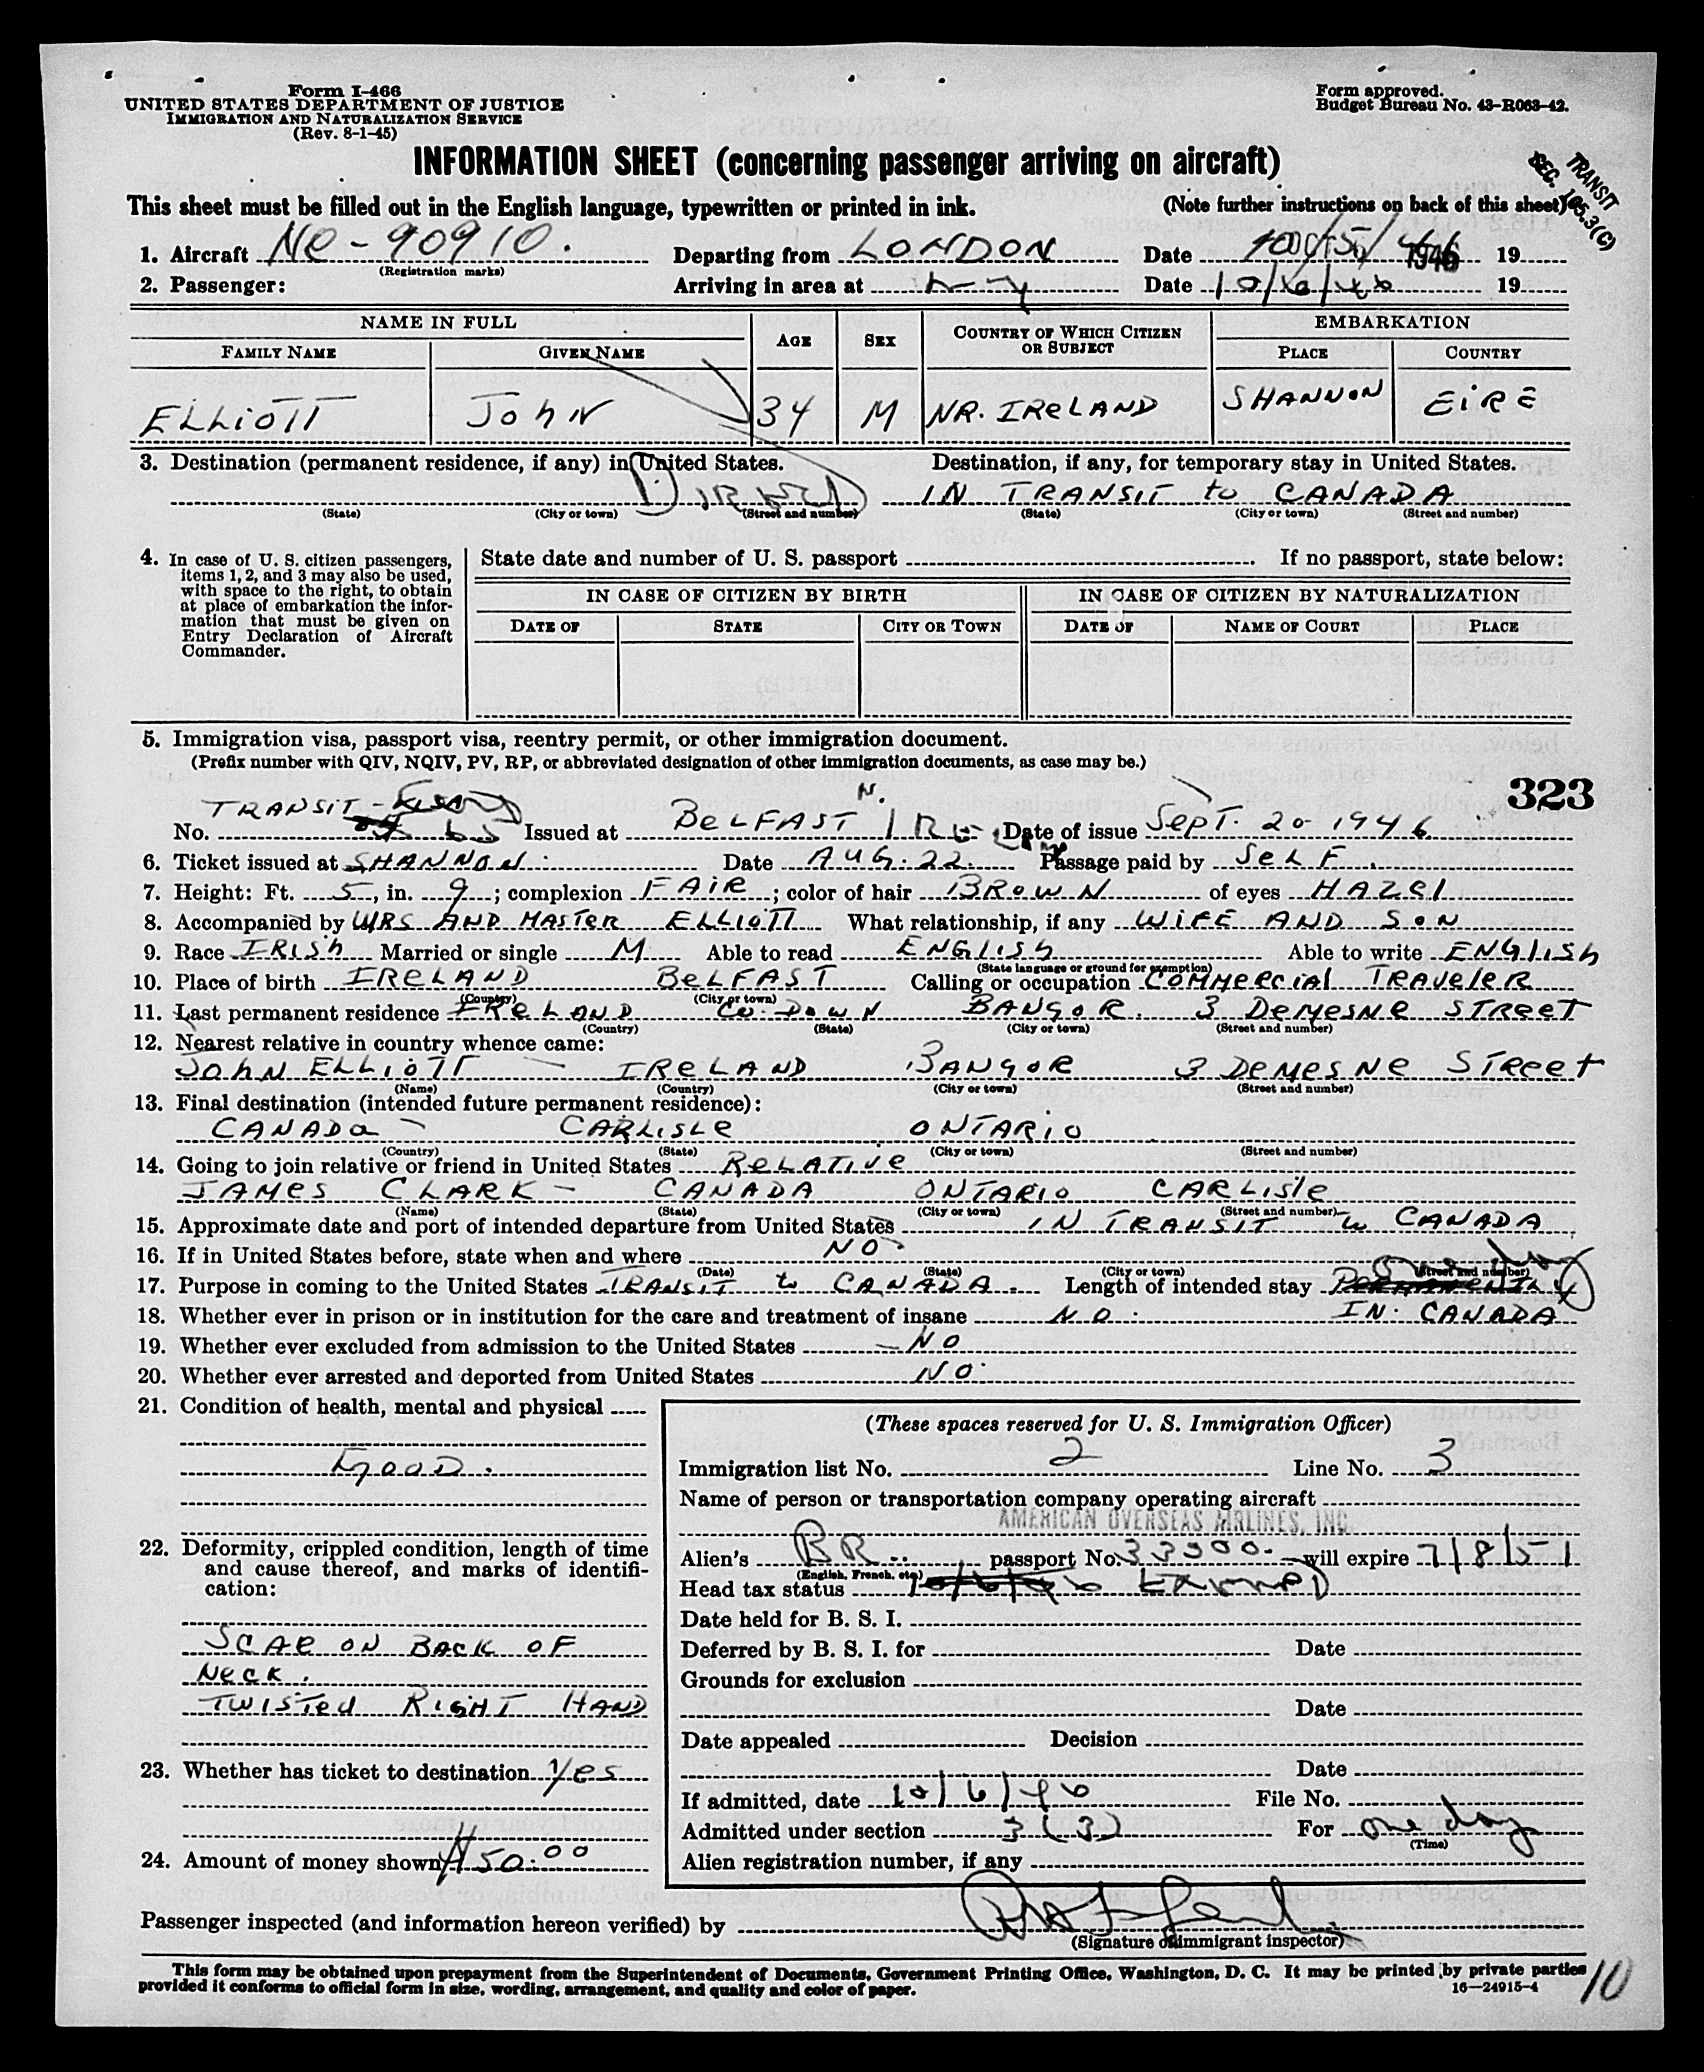 Form I-466
UNITED STATES DEPARTMENT OF JUSTICE
IMMIGRATION AND NATURALIZATION SERVICE
(Rev. 8-1-45)
Form approved.
Budget Bureau No. 43-R063-42.
INFORMATION SHEET (concerning passenger arriving on aircraft)
TRANSIT
SEC. 165.3(C)
This sheet must be filled out in the English language, typewritten or printed in ink. (Note further instructions on back of this sheet)
1. Aircraft NC-90910. Departing from LONDON Date 10/5/46 1946 19
(Registration marks)
2. Passenger: Arriving in area at NY Date 10/6/46 19
NAME IN FULL AGE SEX COUNTRY OF WHICH CITIZEN OR SUBJECT EMBARKATION
FAMILY NAME GIVEN NAME PLACE COUNTRY
ELLiOTT JohN 34 M NR. IReLAND SHANNON EiRE
3. Destination (permanent residence, if any) in United States. Destination, if any, for temporary stay in United States.
IN TRANSIT to CANADA
(State) (City or town) (Street and number) (State) (City or town) (Street and number)
4. In case of U. S. citizen passengers, items 1, 2, and 3 may also be used, with space to the right, to obtain at place of embarkation the information that must be given on Entry Declaration of Aircraft Commander.
State date and number of U. S. passport If no passport, state below:
IN CASE OF CITIZEN BY BIRTH IN CASE OF CITIZEN BY NATURALIZATION
DATE OF STATE CITY OR TOWN DATE OF NAME OF COURT PLACE
5. Immigration visa, passport visa, reentry permit, or other immigration document.
(Prefix number with QIV, NQIV, PV, RP, or abbreviated designation of other immigration documents, as case may be.)
323
No. TRANSIT- Issued at BeLFAST N. IRe Date of issue SepT. 20 1946
6. Ticket issued at SHANNON. Date AUG. 22. Passage paid by SeLF.
7. Height: Ft. 5, in. 9; complexion FAIR; color of hair BROWN of eyes HAZel
8. Accompanied by MRS AND MASTER ELLIOTT What relationship, if any WIFE AND SON
9. Race IRISh Married or single M Able to read ENGLISh Able to write ENGLISh
(State language or ground for exemption)
10. Place of birth IReLAND BeLFAST Calling or occupation COMMeRCIAL TRAVeleR
(Country) (City or town)
11. Last permanent residence IReLAND Co. DOWN BANGOR. 3 DeMeSNe STReeT
(Country) (State) (City or town) (Street and number)
12. Nearest relative in country whence came:
JohN ELLiOTT - IReLAND BANGOR 3 DeMeSNe STReet
(Name) (Country) (City or town) (Street and number)
13. Final destination (intended future permanent residence):
CANADa - CARLISLe ONTARiO
(Country) (State) (City or town) (Street and number)
14. Going to join relative or friend in United States ReLATIVe
JAMeS CLARK - CANADA ONTARIO CARLISle
(Name) (State) (City or town) (Street and number)
15. Approximate date and port of intended departure from United States IN TRANSIT to CANADA
16. If in United States before, state when and where NO.
(Date) (State) (City or town) (Street and number)
17. Purpose in coming to the United States TRANSIT to CANADA. Length of intended stay PeRMANeNTLY One day
18. Whether ever in prison or in institution for the care and treatment of insane NO. IN CANADA
19. Whether ever excluded from admission to the United States - NO
20. Whether ever arrested and deported from United States NO.
21. Condition of health, mental and physical
GOOD.
22. Deformity, crippled condition, length of time and cause thereof, and marks of identification:
SCAR ON BACK OF
NeCK.
TWISTed RIGHT HAND
23. Whether has ticket to destination Yes
24. Amount of money shown $50.00
(These spaces reserved for U. S. Immigration Officer)
Immigration list No. 2 Line No. 3
Name of person or transportation company operating aircraft
AMERICAN OVERSEAS AIRLINES, INC.
Alien's BR.. passport No. 33900 will expire 7/8/51
(English, French, etc.)
Head tax status 10/6/46
Date held for B. S. I.
Deferred by B. S. I. for Date
Grounds for exclusion
Date
Date appealed Decision
Date
If admitted, date 10/6/46 File No.
Admitted under section 3(3) For one day
(Time)
Alien registration number, if any
Passenger inspected (and information hereon verified) by
(Signature of immigrant inspector)
This form may be obtained upon prepayment from the Superintendent of Documents, Government Printing Office, Washington, D. C. It may be printed by private parties
provided it conforms to official form in size, wording, arrangement, and quality and color of paper. 16-24915-4
10